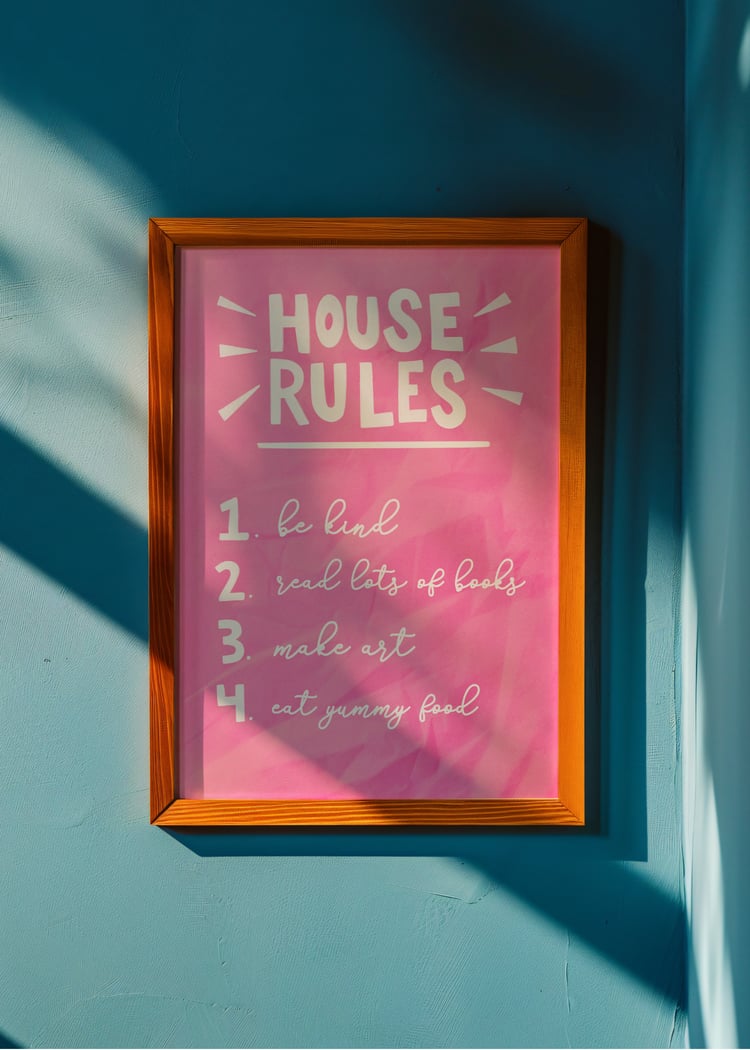 HOUSE
RULES
1. be kind
2. read lots of books
3. make art
4. eat yummy food